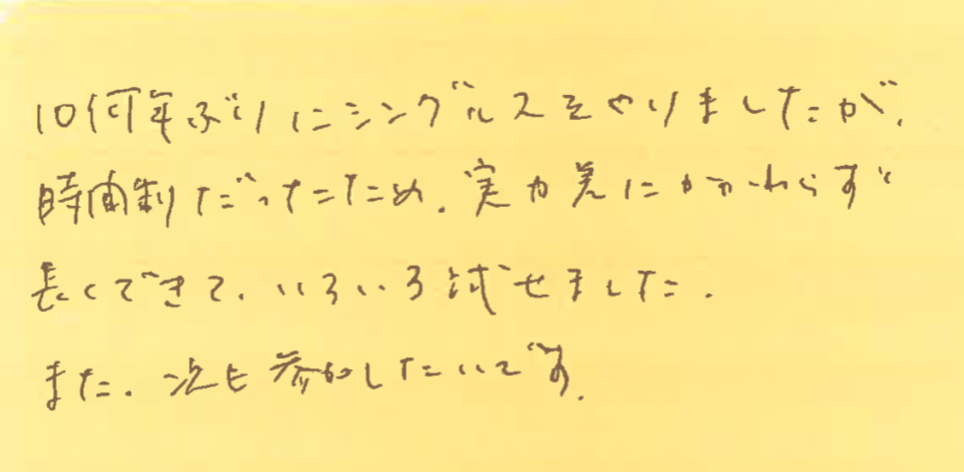 10何年ぶりにシングルスをやりましたが、
時間制だったため、実力差にかかわらず
長くできて、いろいろ試せました。
また、次も参加したいです。